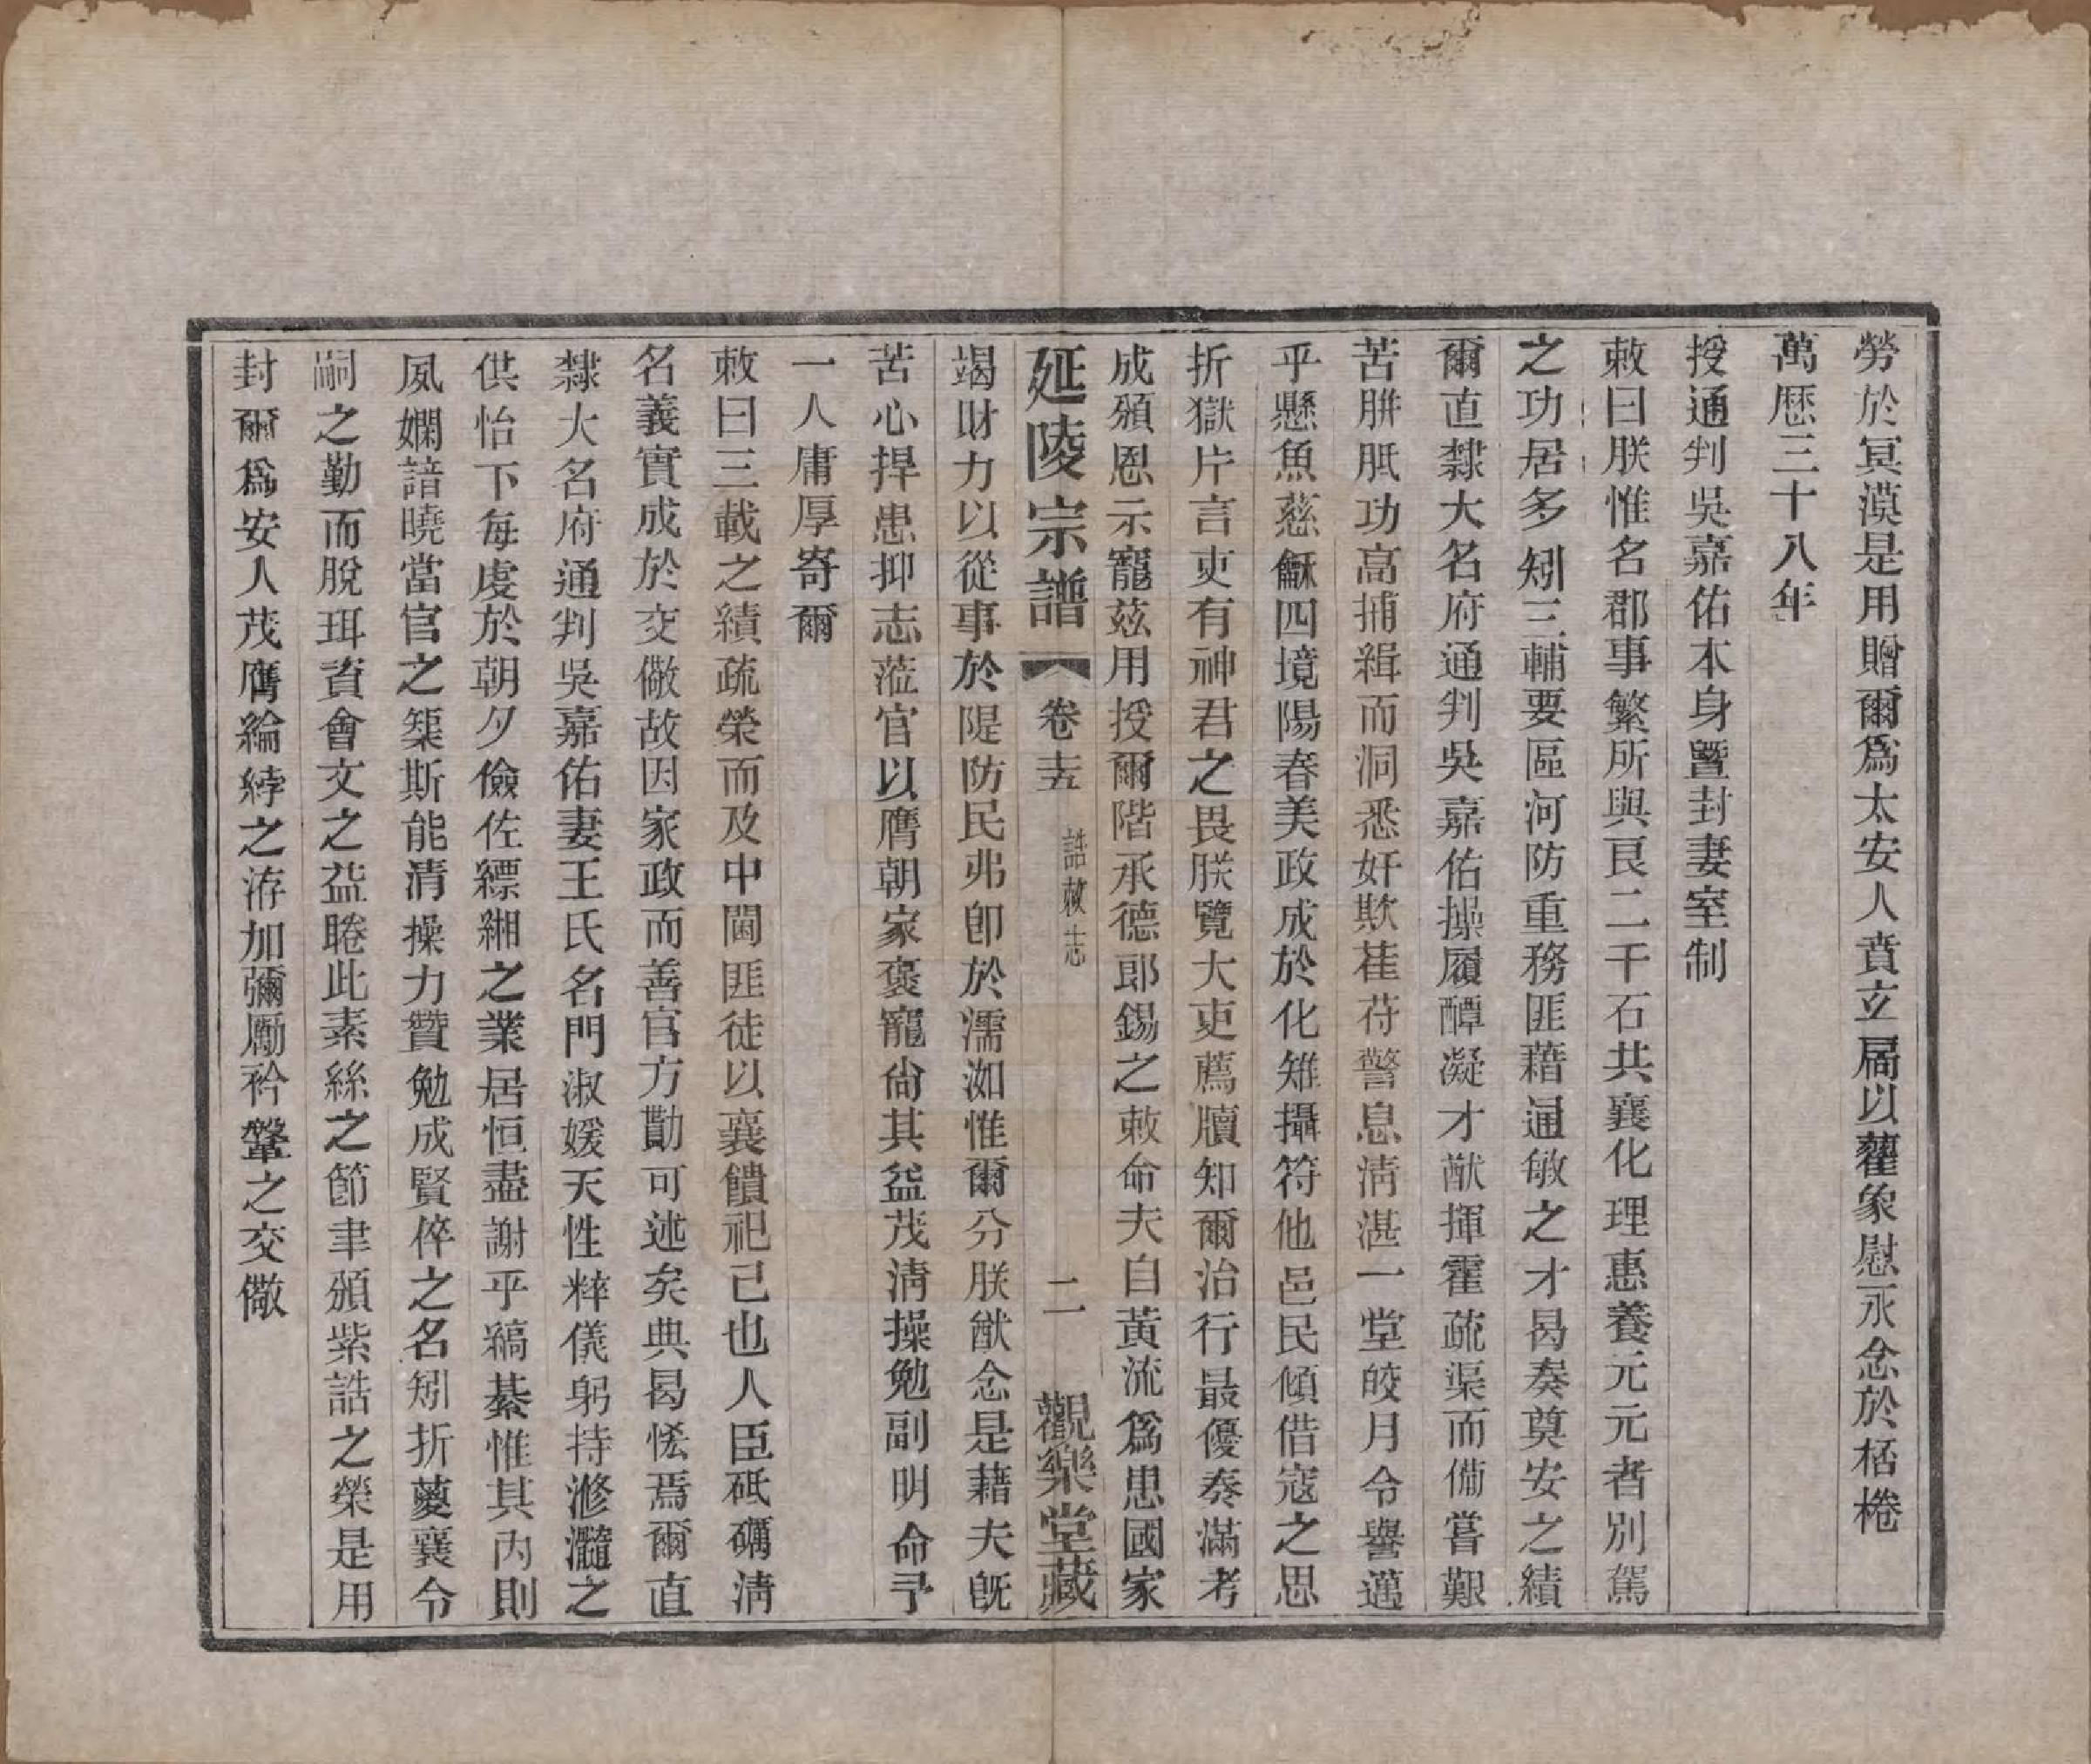 勞於冥漠是用贈爾爲太安人賁立扄以蘿象慰永念於桮棬
萬歷三十八年
授通判吳嘉佑本身曁封妻室制
敕曰朕惟名郡事繁所與良二千石共襄化理惠養元元者別駕
之功居多矧三輔要區河防重務匪藉通敏之才曷奏奠安之績
爾直隸大名府通判吳嘉佑操履醰凝才猷揮霍疏渠而僃嘗艱
苦胼胝功高捕緝而洞悉奸欺萑苻警息清湛一堂皎月令譽邁
乎懸魚慈龢四境陽春美政成於化雉攝符他邑民傾借寇之思
折獄片言吏有神君之畏朕覽大吏薦牘知爾治行最優奏滿考
成頒恩示寵茲用授爾階承德郎錫之敕命夫自黃流爲患國家
延陵宗譜 卷十五 誥敕志 二 觀樂堂藏
竭財力以從事於隄防民弗卽於濡洳惟爾分朕猷念是藉夫旣
苦心捍患抑志蒞官以膺朝家褒寵尙其益茂淸操勉副明命予
一人庸厚寄爾
敕曰三載之績疏榮而及中閫匪徒以襄饋祀已也人臣砥礪淸
名義實成於交儆故因家政而善官方勩可述矣典曷恡焉爾直
隸大名府通判吳嘉佑妻王氏名門淑媛天性粹儀躬持滫瀡之
供怡下每虔於朝夕儉佐縹緗之業居恒盡謝乎縞綦惟其內則
夙嫻諳曉當官之榘斯能清操力贊勉成賢倅之名矧折薆襄令
嗣之勤而脫珥資會文之益睠此素絲之節聿頒紫誥之榮是用
封爾爲安人茂膺綸綍之洊加彌勵衿鞶之交儆